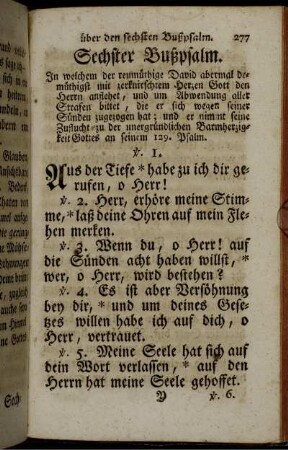 über den sechsten Bußpsalm. 277
Sechster Bußpsalm.
In welchem der reumüthige David abermal de-
müthigst mit zerknirschtem Herzen Gott den
Herrn anflehet, und um Abwendung aller
Strafen bittet, die er sich wegen seiner
Sünden zugezogen hat; und er nimmt seine
Zuflucht zu der unergründlichen Barmherzig-
keit Gottes an seinem 129. Psalm.
℣. 1.
Aus der Tiefe * habe zu ich dir ge-
rufen, o Herr!
℣. 2. Herr, erhöre meine Stim-
me, * laß deine Ohren auf mein Fle-
hen merken.
℣. 3. Wenn du, o Herr! auf
die Sünden acht haben willst, *
wer, o Herr, wird bestehen?
℣. 4. Es ist aber Versöhnung
bey dir, * und um deines Gese-
tzes willen habe ich auf dich, o
Herr, vertrauet.
℣. 5. Meine Seele hat sich auf
dein Wort verlassen, * auf den
Herrn hat meine Seele gehoffet.
Y ℣. 6.